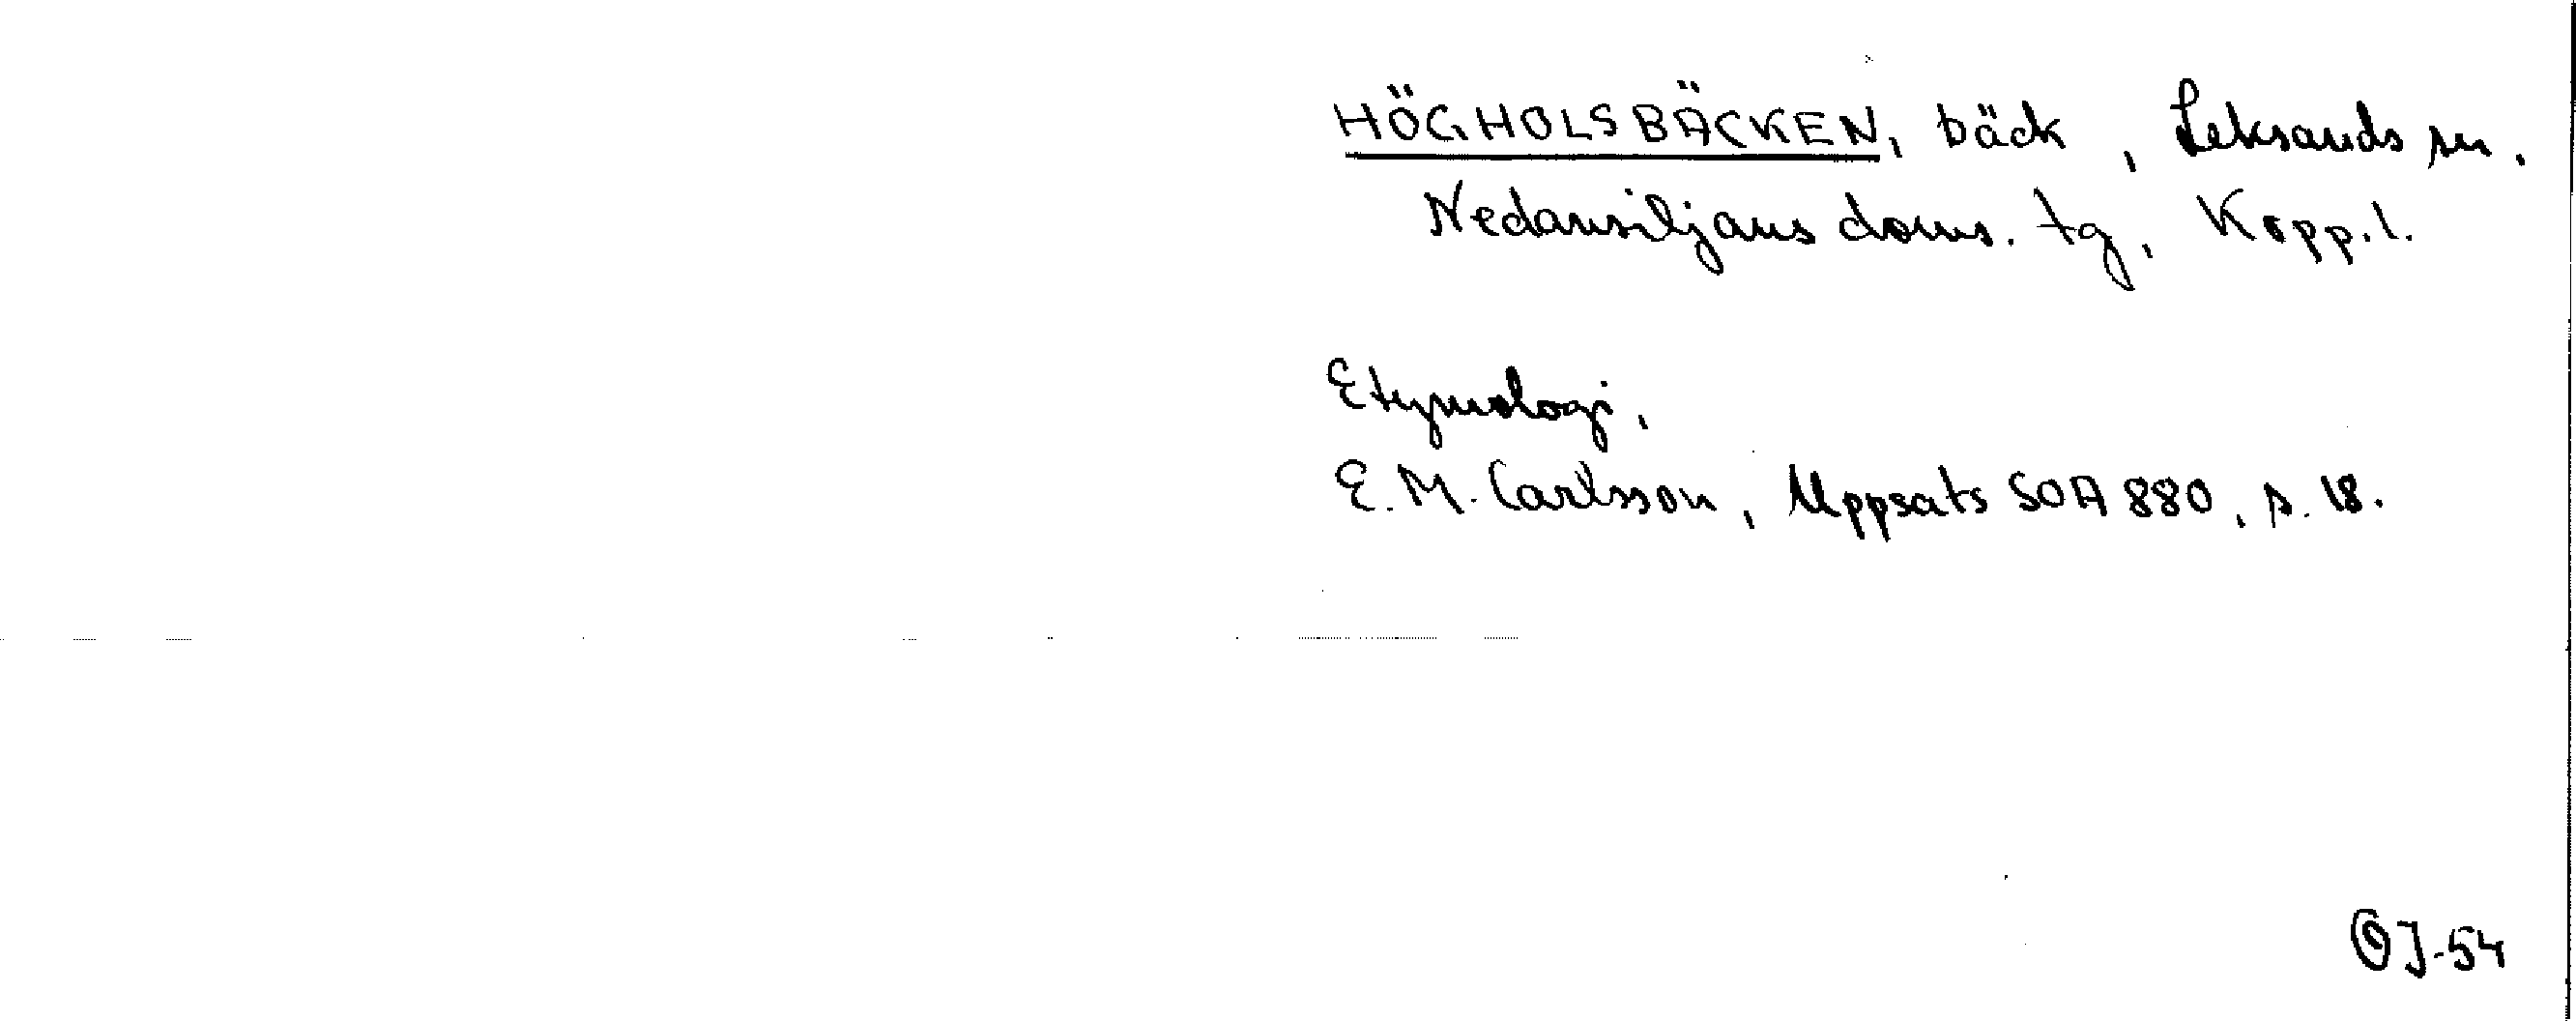 HÖGHOLSBÄCKEN, bäck, Leksands sn,
Nedansiljans doms. tg, Kopp. l.
Etymologi,
E. M. Carlsson, Uppsats SOA 880, s. 18.
J-54